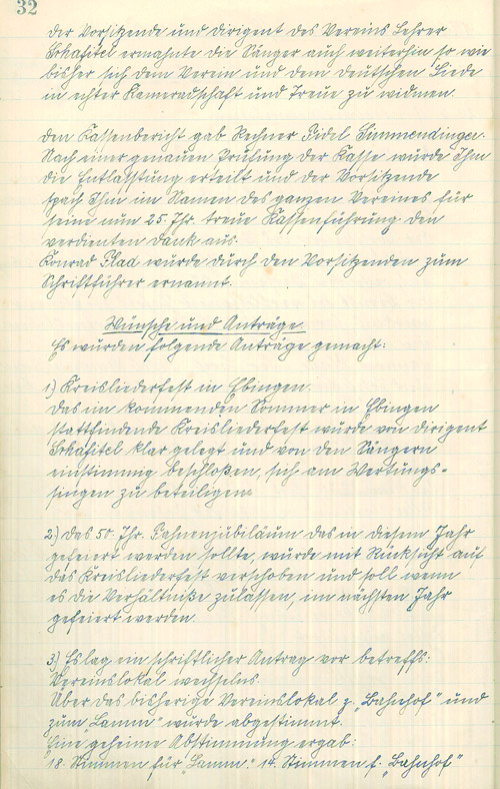 32
der Vorsitzende und Dirigent des Vereins Lehrer
Schafitel ermahnte die Sänger auch weiterhin so wie
bisher sich dem Verein und dem deutschen Liede
in echter Kameradschaft und Treue zu widmen.
Den Kassenbericht gab Rechner Fidel Simmendinger.
Nach einer genauen Prüfung der Kasse wurde Ihm
die Entlasstung erteilt und der Vorsitzende
sprach Ihm im Namen des ganzen Vereines für
seine nun 25. Jhr. treue Kassenführung den
verdienten Dank aus.
Konrad Flad wurde durch den Vorsitzenden zum
Schriftführer ernannt.
Wünsche und Anträge.
Es wurden folgende Anträge gemacht:
1) Kreisliederfest in Ebingen.
Das im kommenden Sommer in Ebingen
stattfindende Kreisliederfest wurde von Dirigent
Schafitel klar gelegt und von den Sängern
einstimmig beschloßen, sich am Wertungs-
singen zu beteiligen.
2.) Das 50. Jhr. Fahnenjubiläum das in diesem Jahr
gefeiert werden sollte, wurde mit Rücksicht auf
das Kreisliederfest verschoben und soll wenn
es die Verhältniße zulassen, im nächsten Jahr
gefeiert werden.
3.) Es lag ein schriftlicher Antrag vor betreffs:
Vereinslokal wechselns.
Über das bisherige Vereinslokal z. „Bahnhof" und
zum „Lamm" wurde abgestimmt.
Eine geheime Abstimmung ergab:
18. Stimmen für „Lamm." 14. Stimmen f. „Bahnhof"